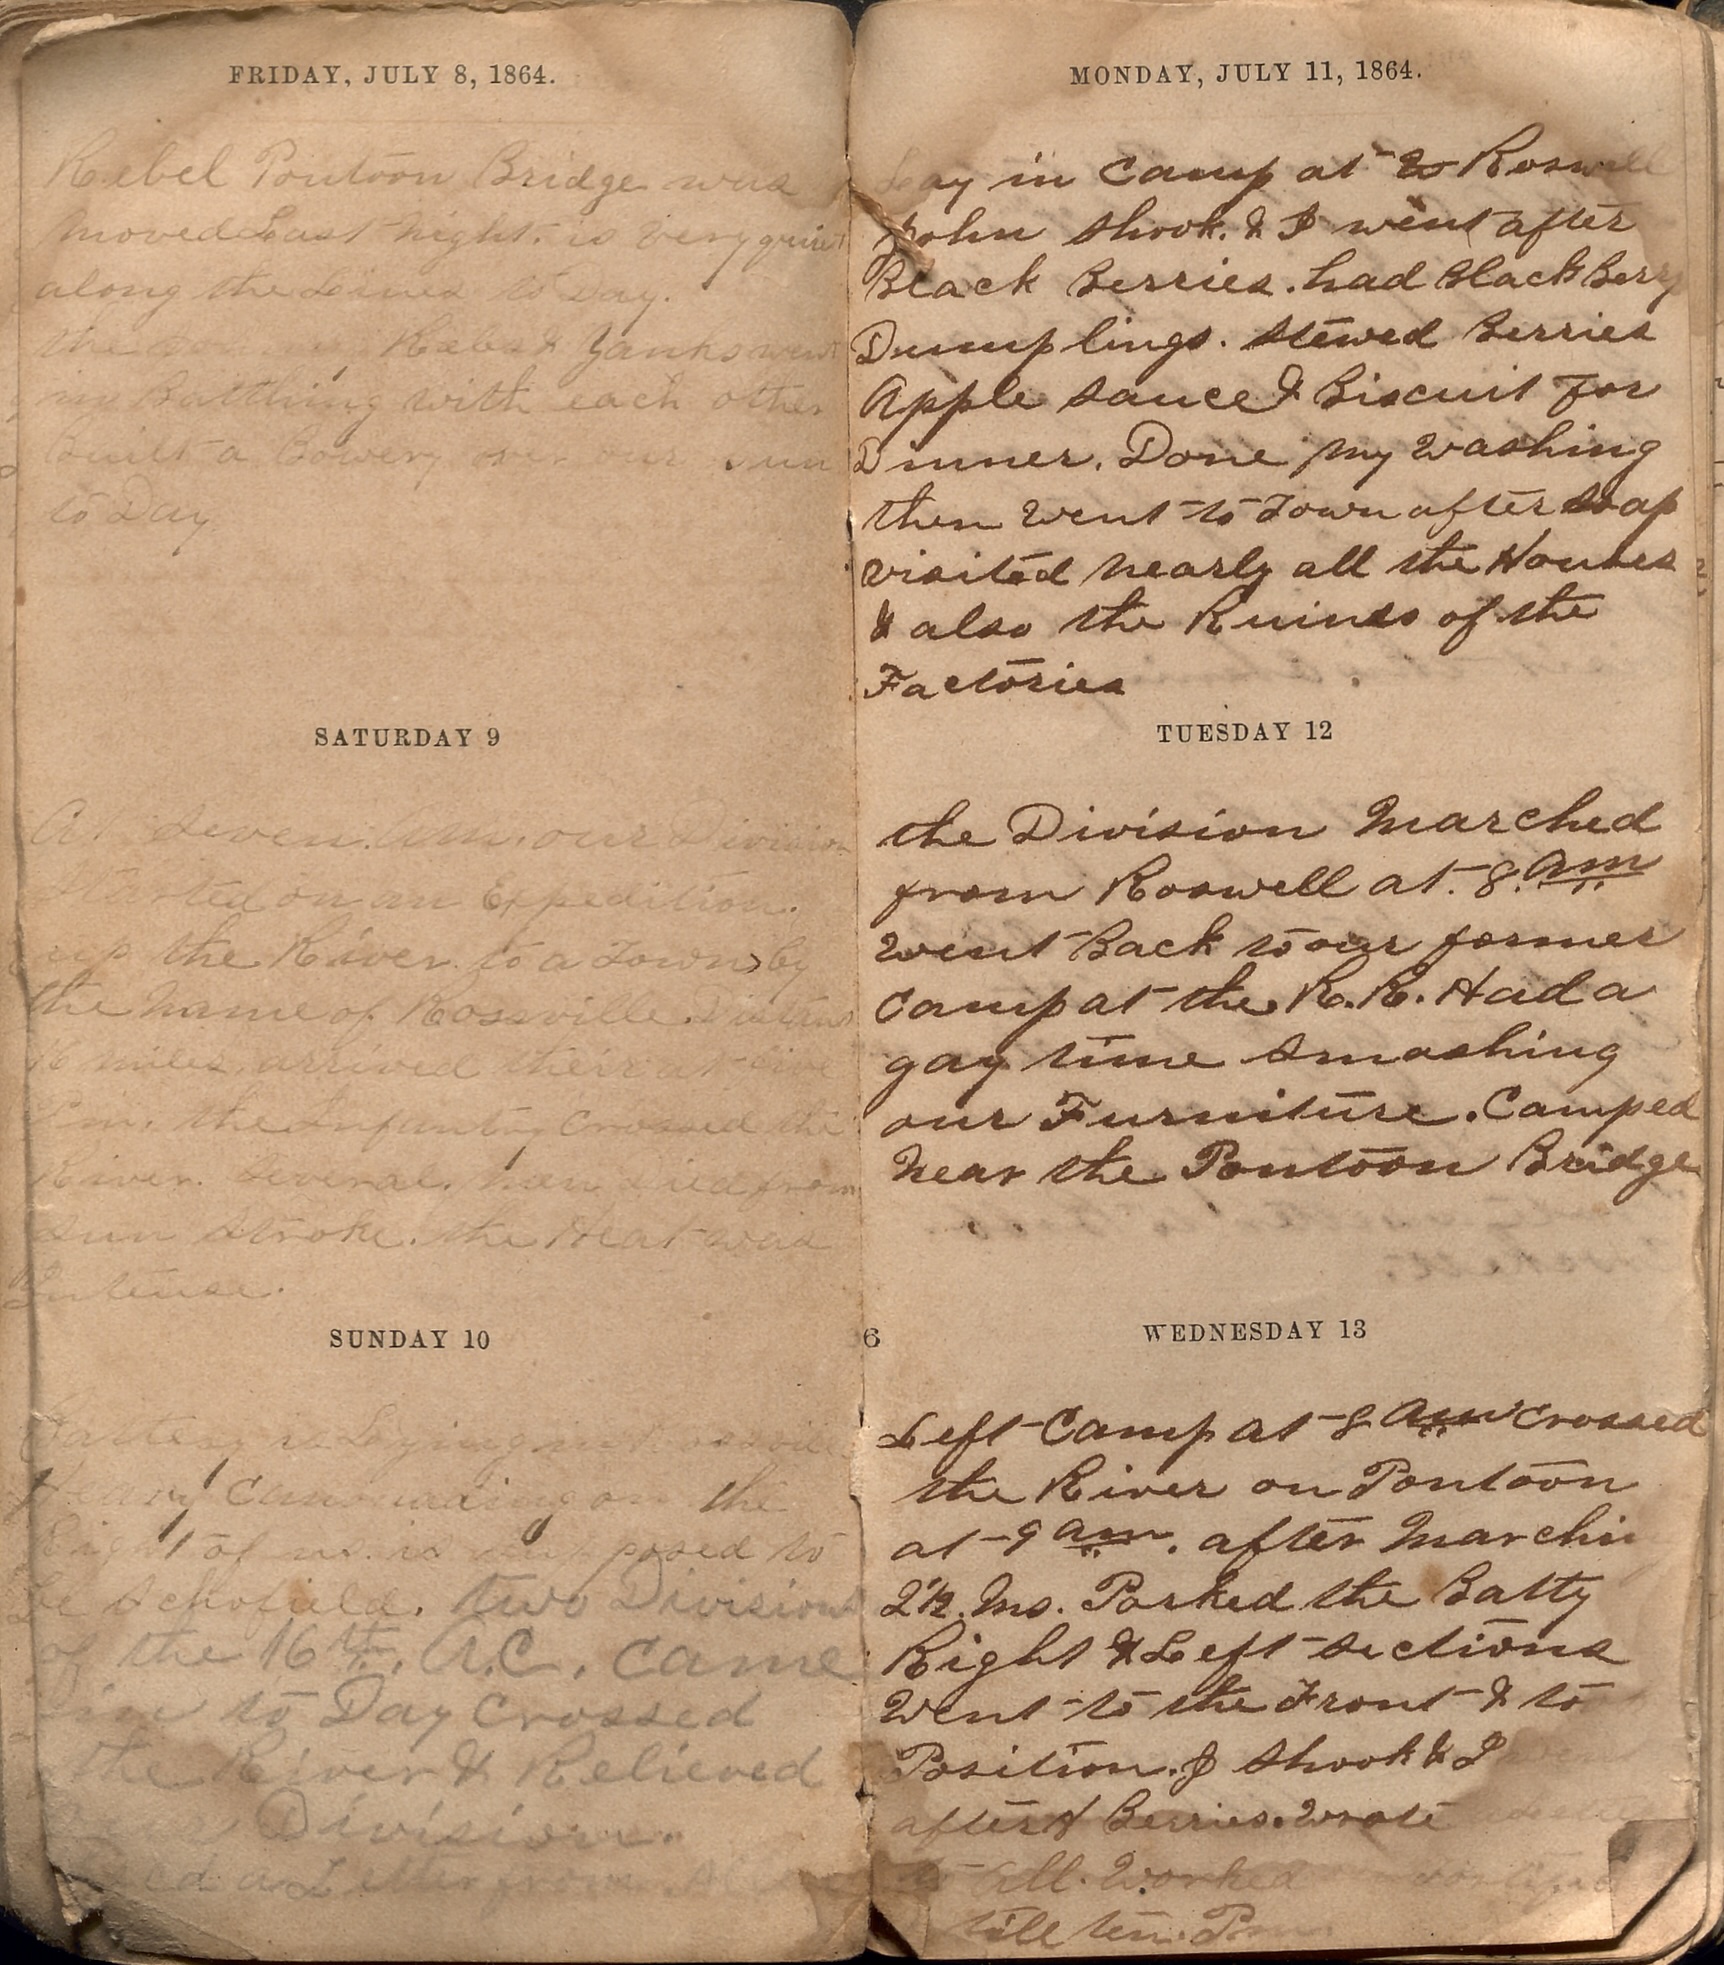 FRIDAY, JULY 8, 1864.
Rebel Pontoon Bridge was
moved Last night. is very quiet
along the Lines to Day.
the Rebs & Yanks went
in Batthing with each other
Built a Bowery over our
to Day
SATURDAY 9
At Seven. Am. our Division
Started on an Expedition.
up the River to a Town by
the name of Rossville. Distance
16 miles, arrived their at five
Pm. the Infantry Crossed the
River. Several. men died from
Sun Stroke. the Heat was
Intense.
SUNDAY 10
Battery is Laying in
Heavy Cannonading on the
Right of us. is supposed to
be Schofield. two Divisions
of the 16th. A.C. came
to Day Crossed
the River & Relieved
Division.
a Letter from
MONDAY, JULY 11, 1864.
Lay in Camp at Roswell
John Shook. & I went after
Black Berries. had Black Berry
Dumplings. Stewed Berries
Apple Sauce & Biscuit for
Dinner. Done my Washing
then Went to Town after Soap
visited nearly all the Houses
& also the Ruines of the
Factories
TUESDAY 12
the Division Marched
from Roswell at. 8. am
Went Back to our former
Camp at the R.R. Had a
gay time Smashing
our Furniture. Camped
Near the Pontoon Bridge
6
WEDNESDAY 13
Left Camp at 8 am Crossed
the River on Pontoon
at 9 am. after Marchin
2½. Ms. Parked the Batty
Right & Left Sections
Went to the Front & to
Position. J Shook & I
after Berries. Wrote
to All. Worked
till ten. Pm